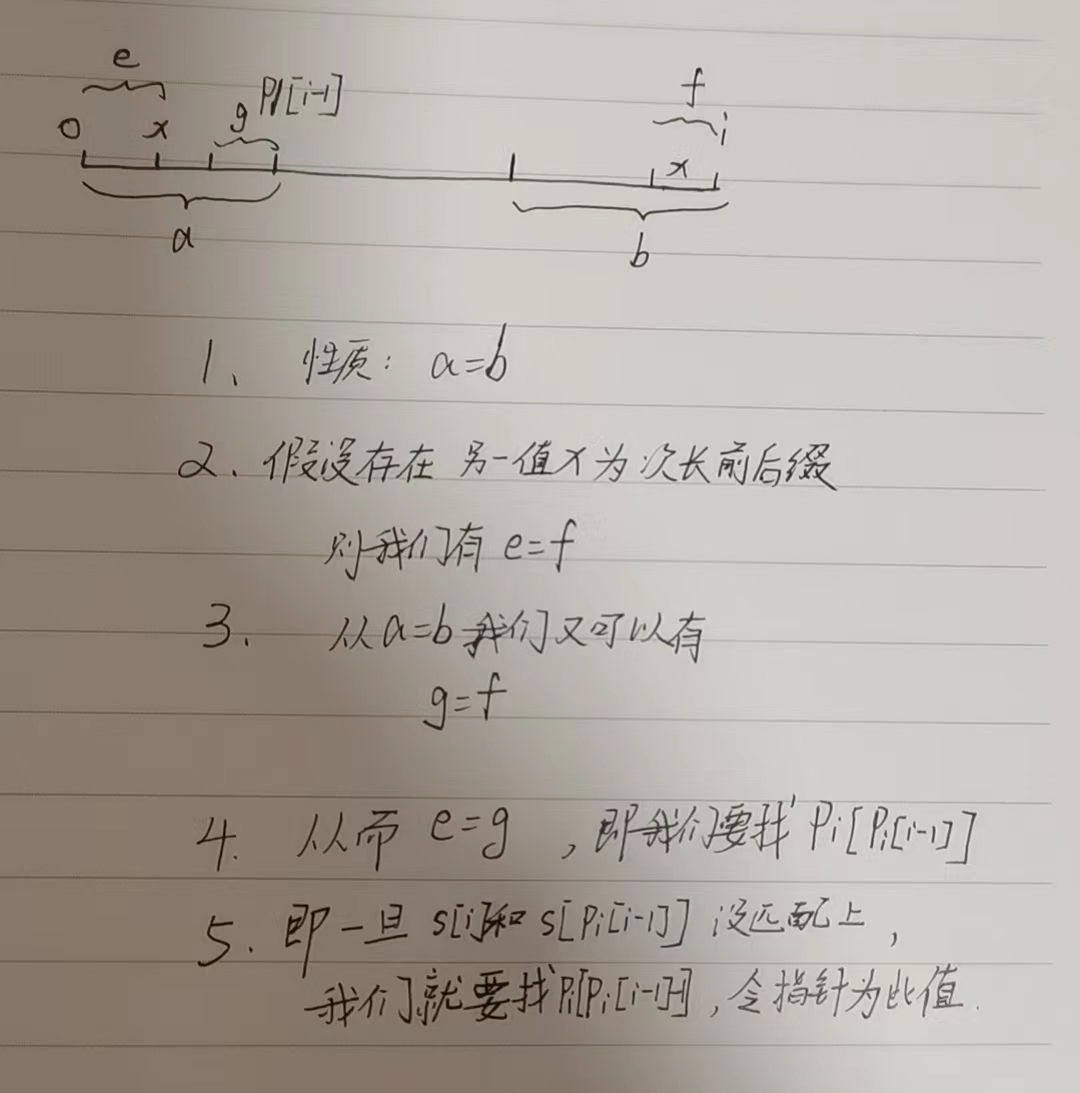 e
f
0 x g Pi[i-1]
i
x
a
b
1、 性质: a=b
2、假没存在 另一值x为次长前后缀
则我们有 e=f
3、 从a=b我们又可以有
g=f
4. 从而 e=g ,即我们要找 Pi[Pi[i-1]]
5. 即一旦 s[i]和 s[Pi[i-1]] 没匹配上,
我们就要找Pi[Pi[i-1]-1],令指针为此值.